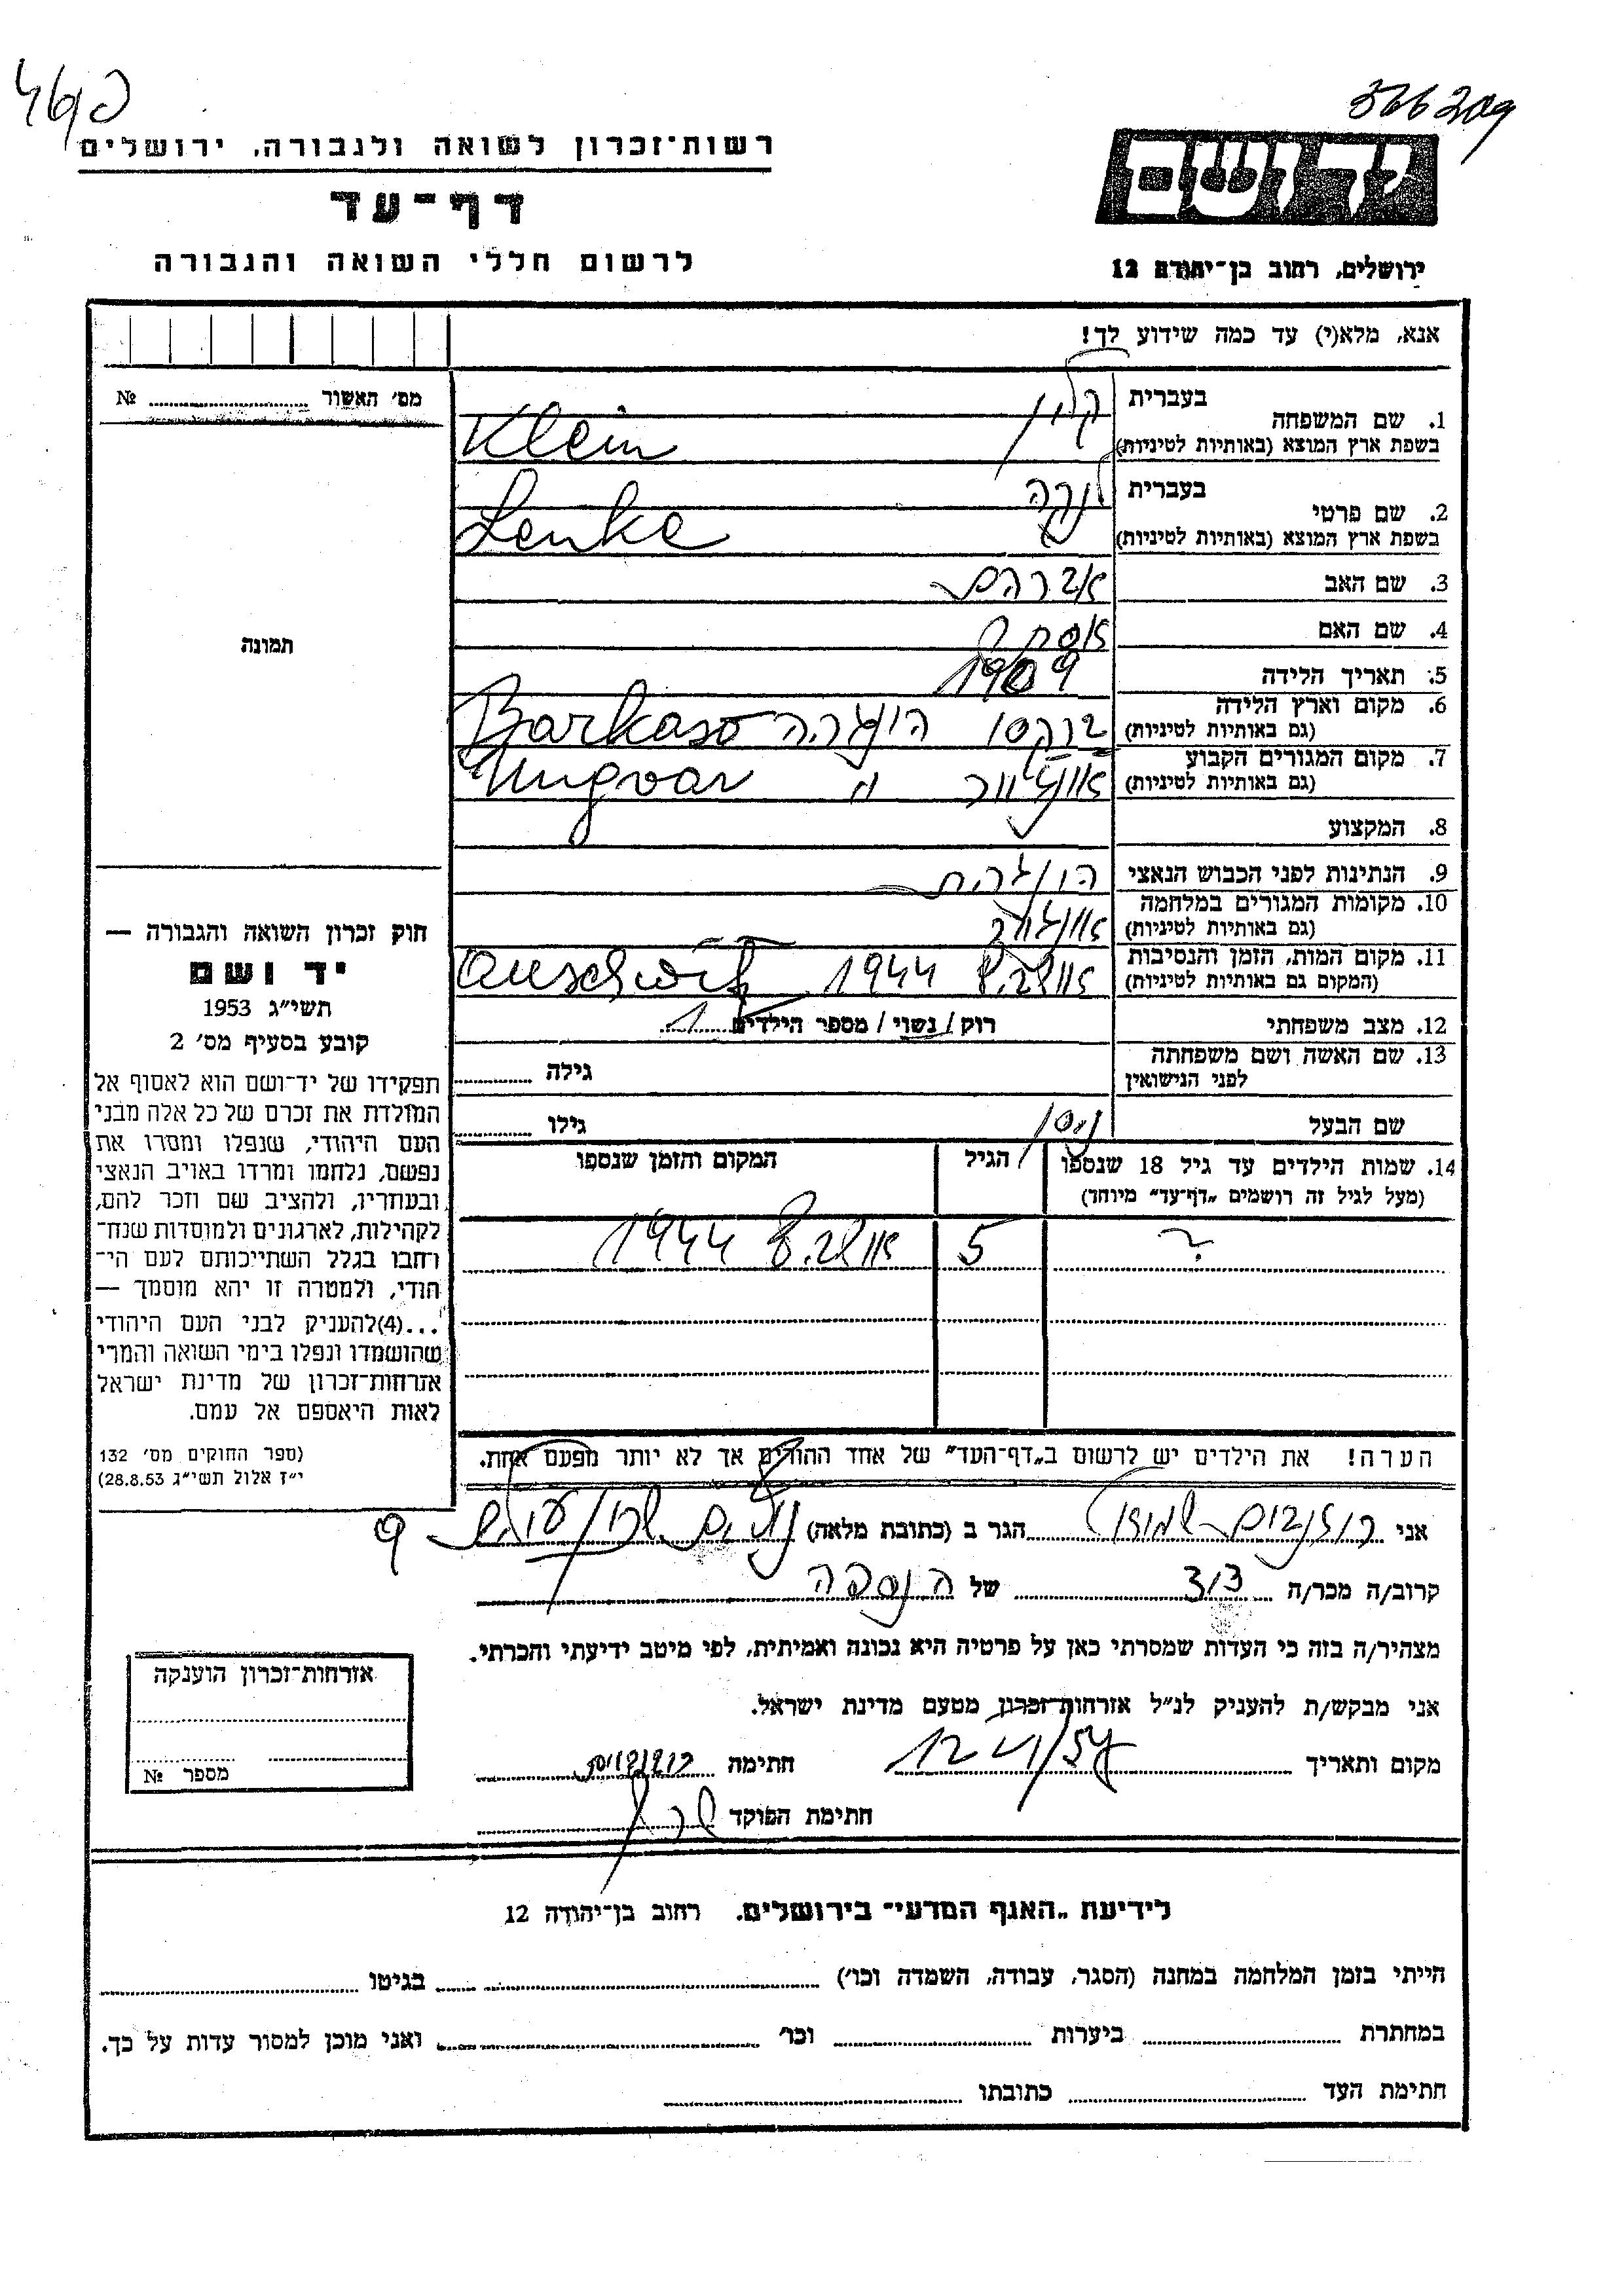 366209
רשות־זכרון לשואה ולגבורה, ירושלים
דף־עד
לרשום חללי השואה והגבורה
יד ושם
ירושלים, רחוב בן־יהודה 12
אנא, מלא(י) עד כמה שידוע לך!
מס׳ האשור № 
1. שם המשפחה בעברית קליין
בשפת ארץ המוצא (באותיות לטיניות) Klein
2. שם פרטי בעברית לנקה
בשפת ארץ המוצא (באותיות לטיניות) Lenke
3. שם האב אברהם
4. שם האם אסתר
5. תאריך הלידה 1909
6. מקום וארץ הלידה (גם באותיות לטיניות) ברקסו הונגריה Barkaso
7. מקום המגורים הקבוע (גם באותיות לטיניות) אונגוור Ungvar
8. המקצוע
9. הנתינות לפני הכבוש הנאצי הונגרית
10. מקומות המגורים במלחמה (גם באותיות לטיניות) אונגוור
11. מקום המות, הזמן והנסיבות (המקום גם באותיות לטיניות) 1944 Auschwitz
12. מצב משפחתי רוק/נשוי/מספר הילדים 1
13. שם האשה ושם משפחתה לפני הנישואין גילה
שם הבעל גילו
14. שמות הילדים עד גיל 18 שנספו (מעל לגיל זה רושמים „דף־עד״ מיוחד) הגיל המקום והזמן שנספו
? 5 1944
הערה! את הילדים יש לרשום ב„דף־העד״ של אחד ההורים אך לא יותר מפעם אחת.
תמונה
חוק זכרון השואה והגבורה —
יד ושם
תשי״ג 1953
קובע בסעיף מס׳ 2
תפקידו של יד־ושם הוא לאסוף אל
המולדת את זכרם של כל אלה מבני
העם היהודי, שנפלו ומסרו את
נפשם, נלחמו ומרדו באויב הנאצי
ובעוזריו, ולהציב שם וזכר להם,
לקהילות, לארגונים ולמוסדות שנח־
רחבו בגלל השתייכותם לעם הי־
הודי, ולמטרה זו יהא מוסמך —
...(4) להעניק לבני העם היהודי
שהושמדו ונפלו בימי השואה והמרי
אזרחות־זכרון של מדינת ישראל
לאות היאספם אל עמם.
(ספר החוקים מס׳ 132
י״ז אלול תשי״ג 28.8.53)
אני הגר ב (כתובת מלאה)
קרוב/ה מכר/ה של הנספה
מצהיר/ה בזה כי העדות שמסרתי כאן על פרטיה היא נכונה ואמיתית, לפי מיטב ידיעתי והכרתי.
אני מבקש/ת להעניק לנ״ל אזרחות־זכרון מטעם מדינת ישראל.
מקום ותאריך חתימה
חתימת הפוקד
אזרחות־זכרון הוענקה
מספר №
לידיעת „האגף המדעי״ בירושלים, רחוב בן־יהודה 12
הייתי בזמן המלחמה במחנה (הסגר, עבודה, השמדה וכו׳) בגיטו
במחתרת ביערות וכו׳ ואני מוכן למסור עדות על כך.
חתימת העד כתובתו